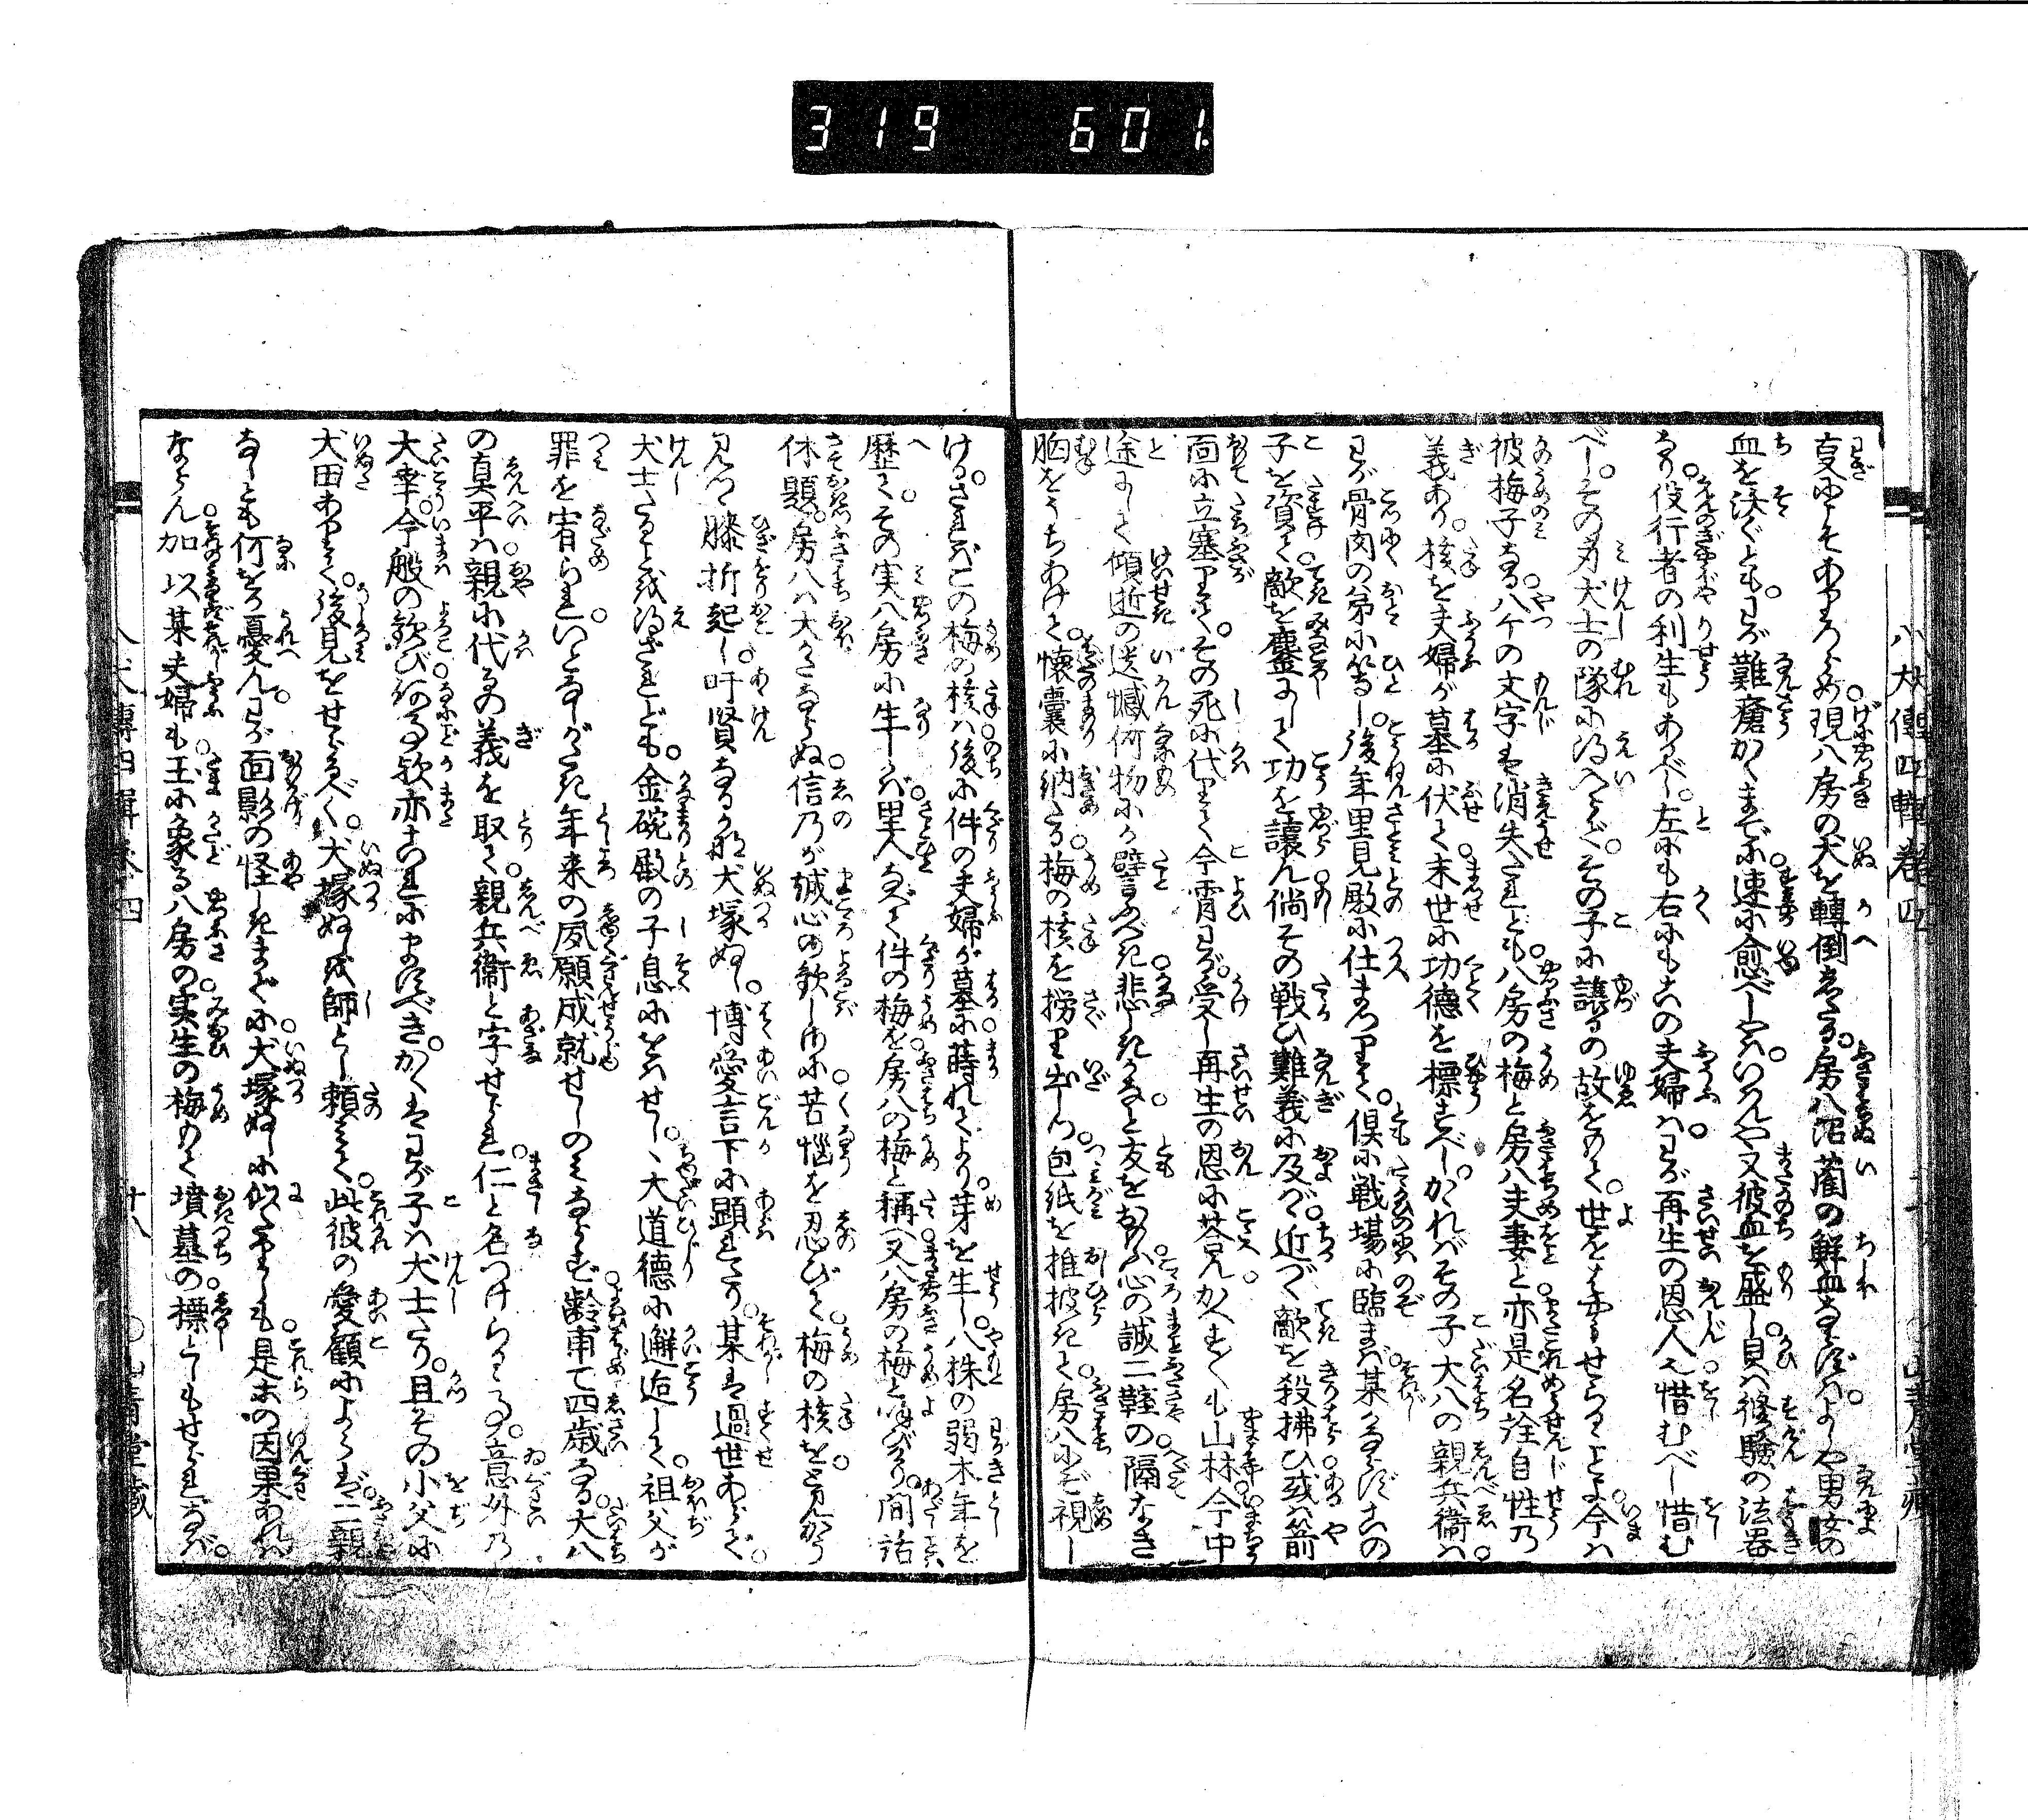 319 601.
八犬傳四輯卷四
㕝にこそあらめ。現八房の犬を轉倒せる。房八沼藺の鮮血ならずは。よしや男女の
血を沃ぐとも。わが難瘡かくまでに。速に愈べしやは。いはんや又彼血を盛し。貝は修驗の法器
なり。役行者の利生もあるべし。左にも右にもこの夫婦は。わが再生の恩人也。惜むべし惜む
べし。その身犬士の隊に得入らで。その子に讓るの故をもて。世をはやうせられしとよ。今は
彼梅子なる。八个の文字は消失たれども。八房の梅と房八夫妻と。亦是名詮自性の
義あり。核を夫婦が墓に伏て。末世に功德を標すべし。かゝればその子大八の親兵衞は。
わが骨肉の弟に等し。後年里見殿に仕まつりて。俱に戰場に臨まば。某かならずこの
子を資て。敵を鏖にして功を讓ん。倘その戰ひ難義に及ばゞ。近づく敵を殺拂ひ。或は箭
面に立塞りて。その死に代りて今宵わが。受し再生の恩に荅ん。かへすくも山林。今中
途にして傾逝の遺憾何物にか譬ふべき。悲しきかなと友をおもふ。心の誠二鞘の。隔なき
胸をうちあけて。懷囊に納たる。梅の核を撈り出しつ。包紙を推披きて。房八にぞ視し
ける。さればこの梅の核は。後に件の夫婦が墓に蒔れてより。芽を生し。八株の弱木年を
歷て。その実八房に生しかば。里人なべて件の梅を。房八の梅と稱へ。又八房の梅と喚びけり。間話
休題。房八は大かたならぬ。信乃が誠心の歡しさに。苦惱を忍びて。梅の核を。とみかう
見つゝ膝折起し。吁賢なるかな犬塚ぬし。博愛言下に顯れたり。某は過世あらで。
犬士たることを得ざれども。金碗殿の子息にをはせし、大道德に邂逅して。祖父が
罪を宥られ。いとなしがたき年來の夙願成就せしのみならず。齡甫て四歲なる。大八
の真平は。親に代るの義を取て。親兵衞と字せられ。仁と名つけらるゝ事。意外の
大幸。今般の歡び何事歟亦これにますべき。かくはわが子は犬士たり。且その小父に
犬田あり。よく後見をせらるべく。犬塚ぬしを師とし賴みて。此彼の愛顧によらば。二親
なしとも何をか憂ん。わが面影の怪しきまでに。犬塚ぬしに似たりしも。是等の因果あれば
ならん。加以某夫婦も。玉に象る八房の。実生の梅もて墳墓の標ともせられなば。
八犬傳四輯卷四 廿八 ○山靑堂藏